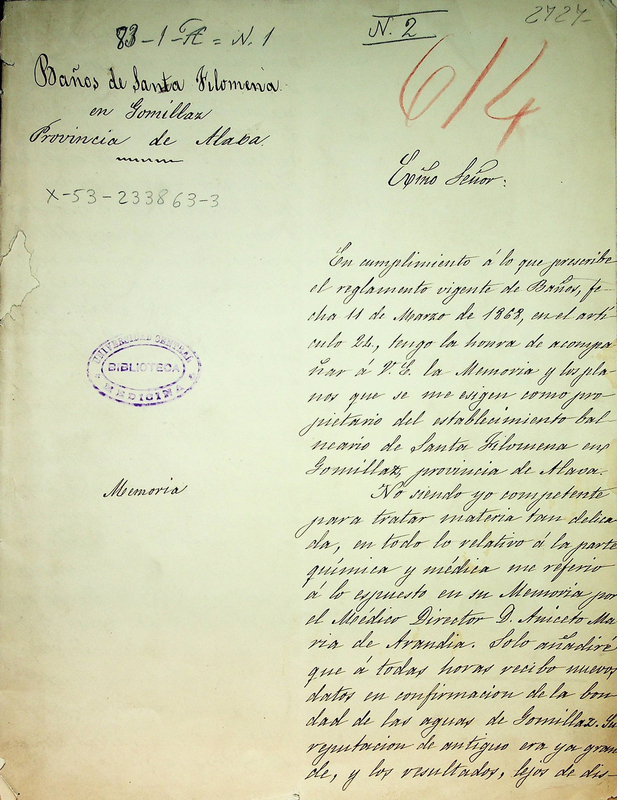 83-1-A = N. 1
N. 2
2727-
614
Baños de Santa Filomena
en Gomillaz
Provincia de Alava.
X-53-233863-3
Exmo Señor:
En cumplimiento á lo que prescribe
el reglamento vigente de Baños, fe-
cha 11 de Marzo de 1868, en el artí-
culo 24, tengo la honra de acompa-
ñar á V. E. la Memoria y los pla-
nos que se me esigen como pro-
pietario del establecimiento bal-
neario de Santa Filomena en
Gomillaz, provincia de Alava.
UNIVERSIDAD CENTRAL
BIBLIOTECA
MEDICINA
Memoria
No siendo yo competente
para tratar materia tan delica-
da, en todo lo relativo á la parte
química y médica me refiero
á lo espuesto en su Memoria por
el Médico Director D. Aniceto Ma
ria de Arandia. Solo añadiré
que á todas horas recibo nuevos
datos en confirmacion de la bon
dad de las aguas de Gomillaz. Su
reputacion de antiguo era ya gran
de, y los resultados, lejos de dis-